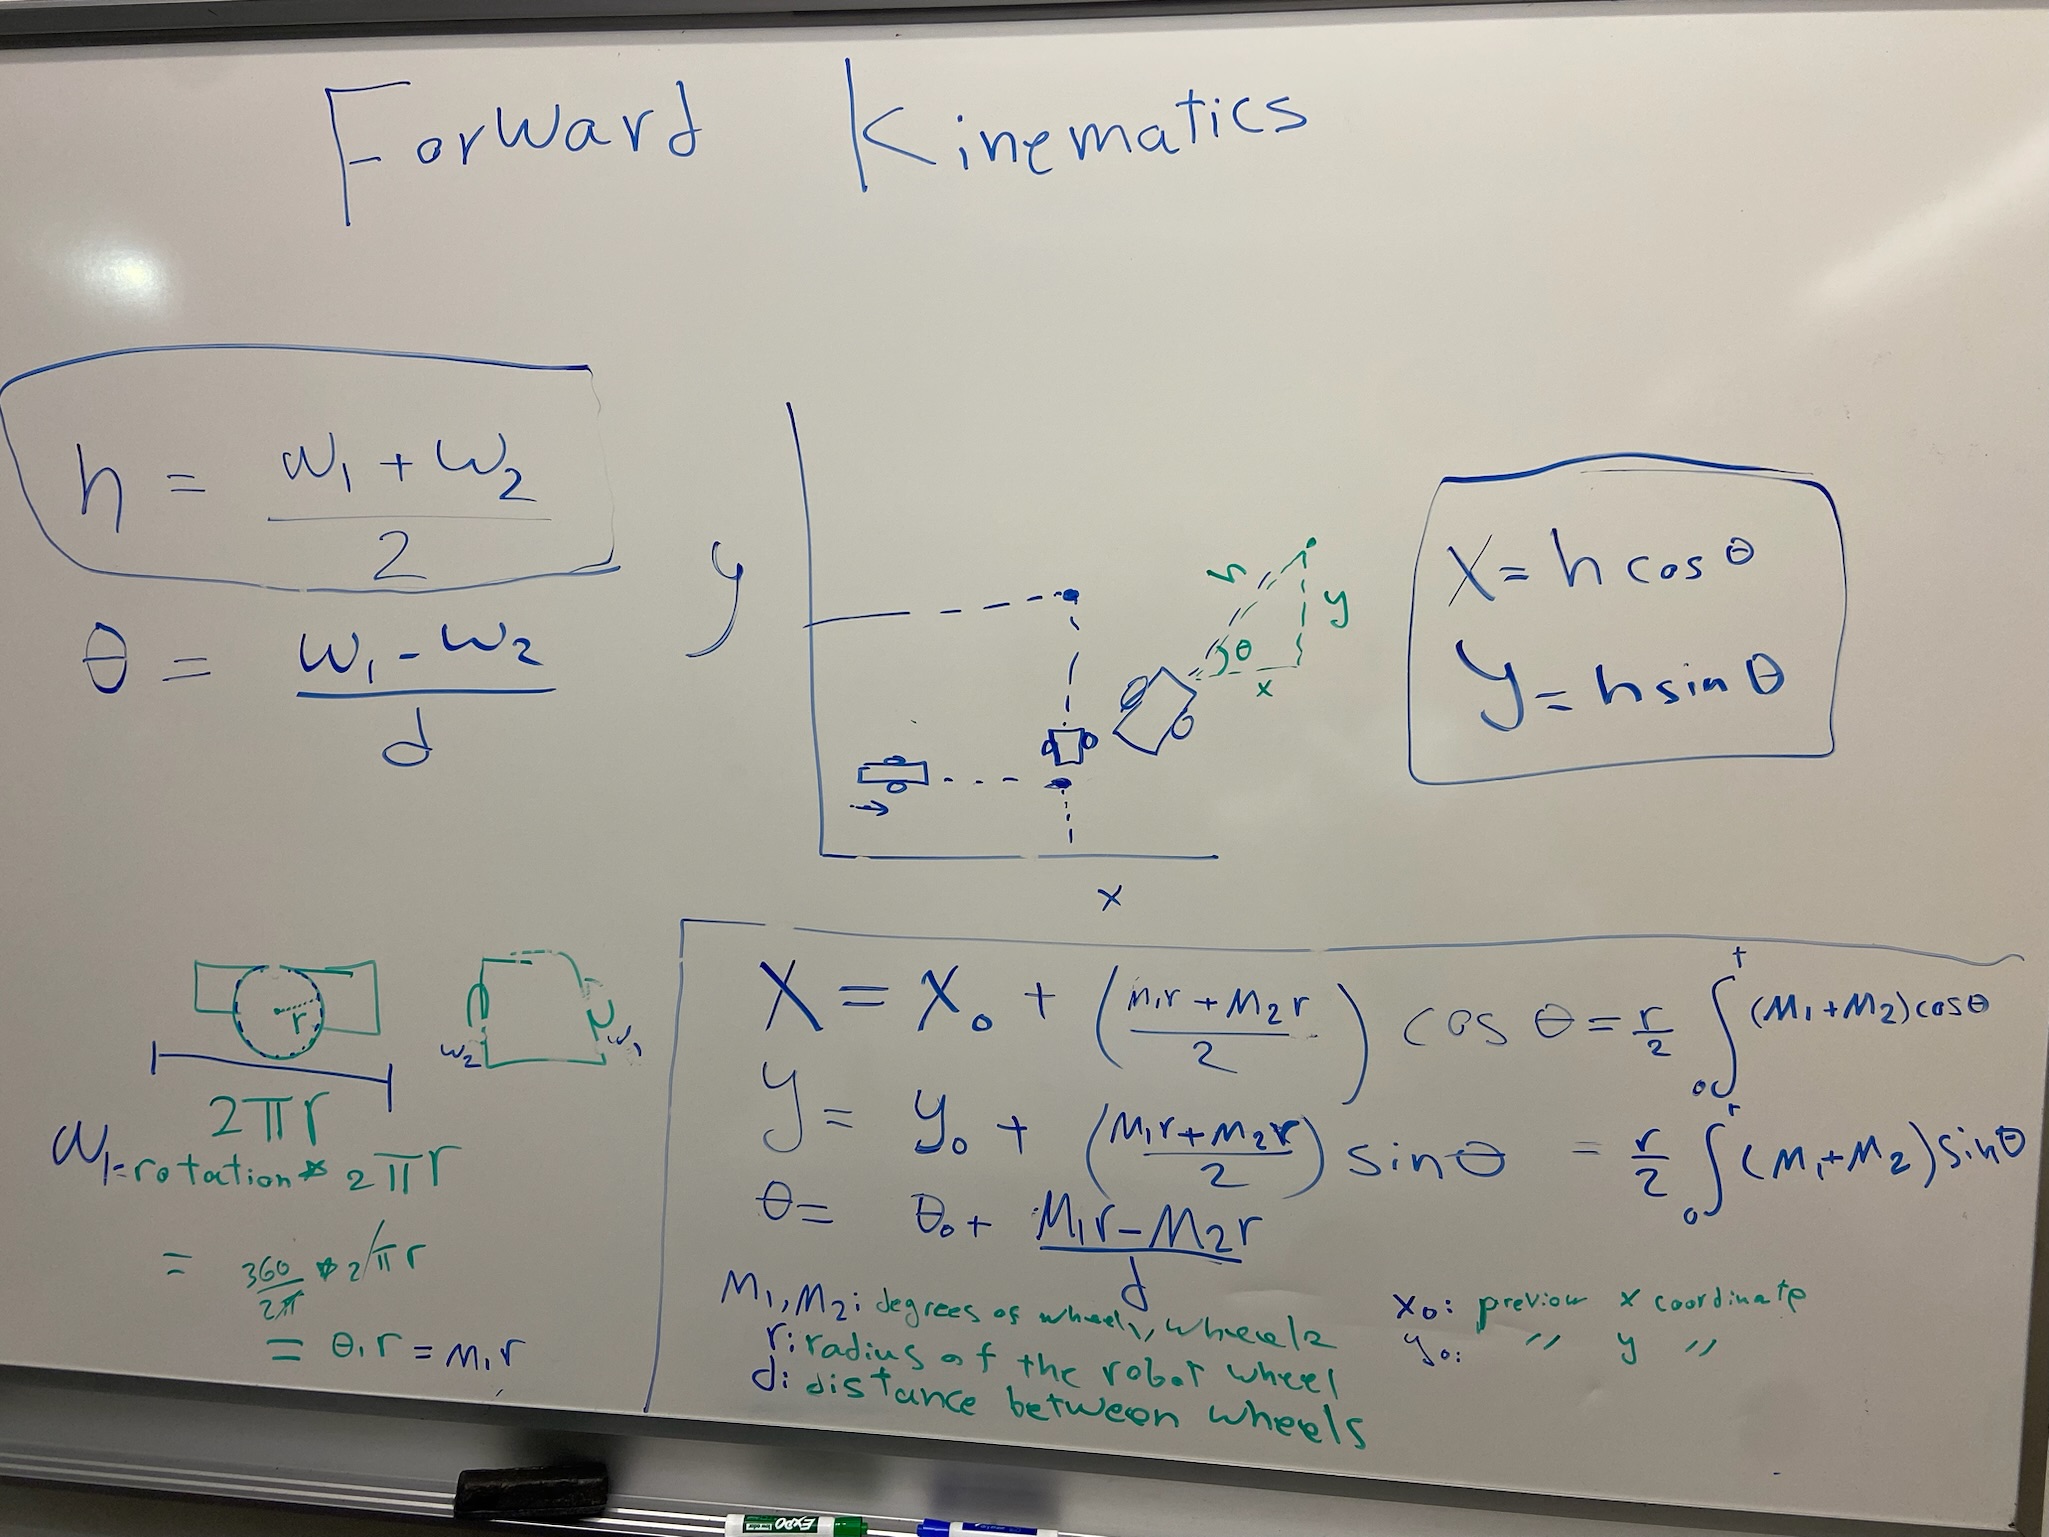 Forward Kinematics
h = w₁ + w₂ / 2
θ = w₁ - w₂ / d
y
x
h
θ
y
x
X = h cos θ
y = h sin θ
r
2πr
w₂
w₁
w₁ = rotation * 2πr
= 360/2π * 2πr
= θ₁r = M₁r
X = X₀ + (M₁r + M₂r / 2) cos θ = r/2 ∫₀ᵗ (M₁ + M₂) cos θ
y = y₀ + (M₁r + M₂r / 2) sin θ = r/2 ∫₀ᵗ (M₁ + M₂) sin θ
θ = θ₀ + M₁r - M₂r / d
M₁, M₂: degrees of wheel1, wheel2
r: radius of the robot wheel
d: distance between wheels
x₀: previou x coordinate
y₀: " y "
EXPO